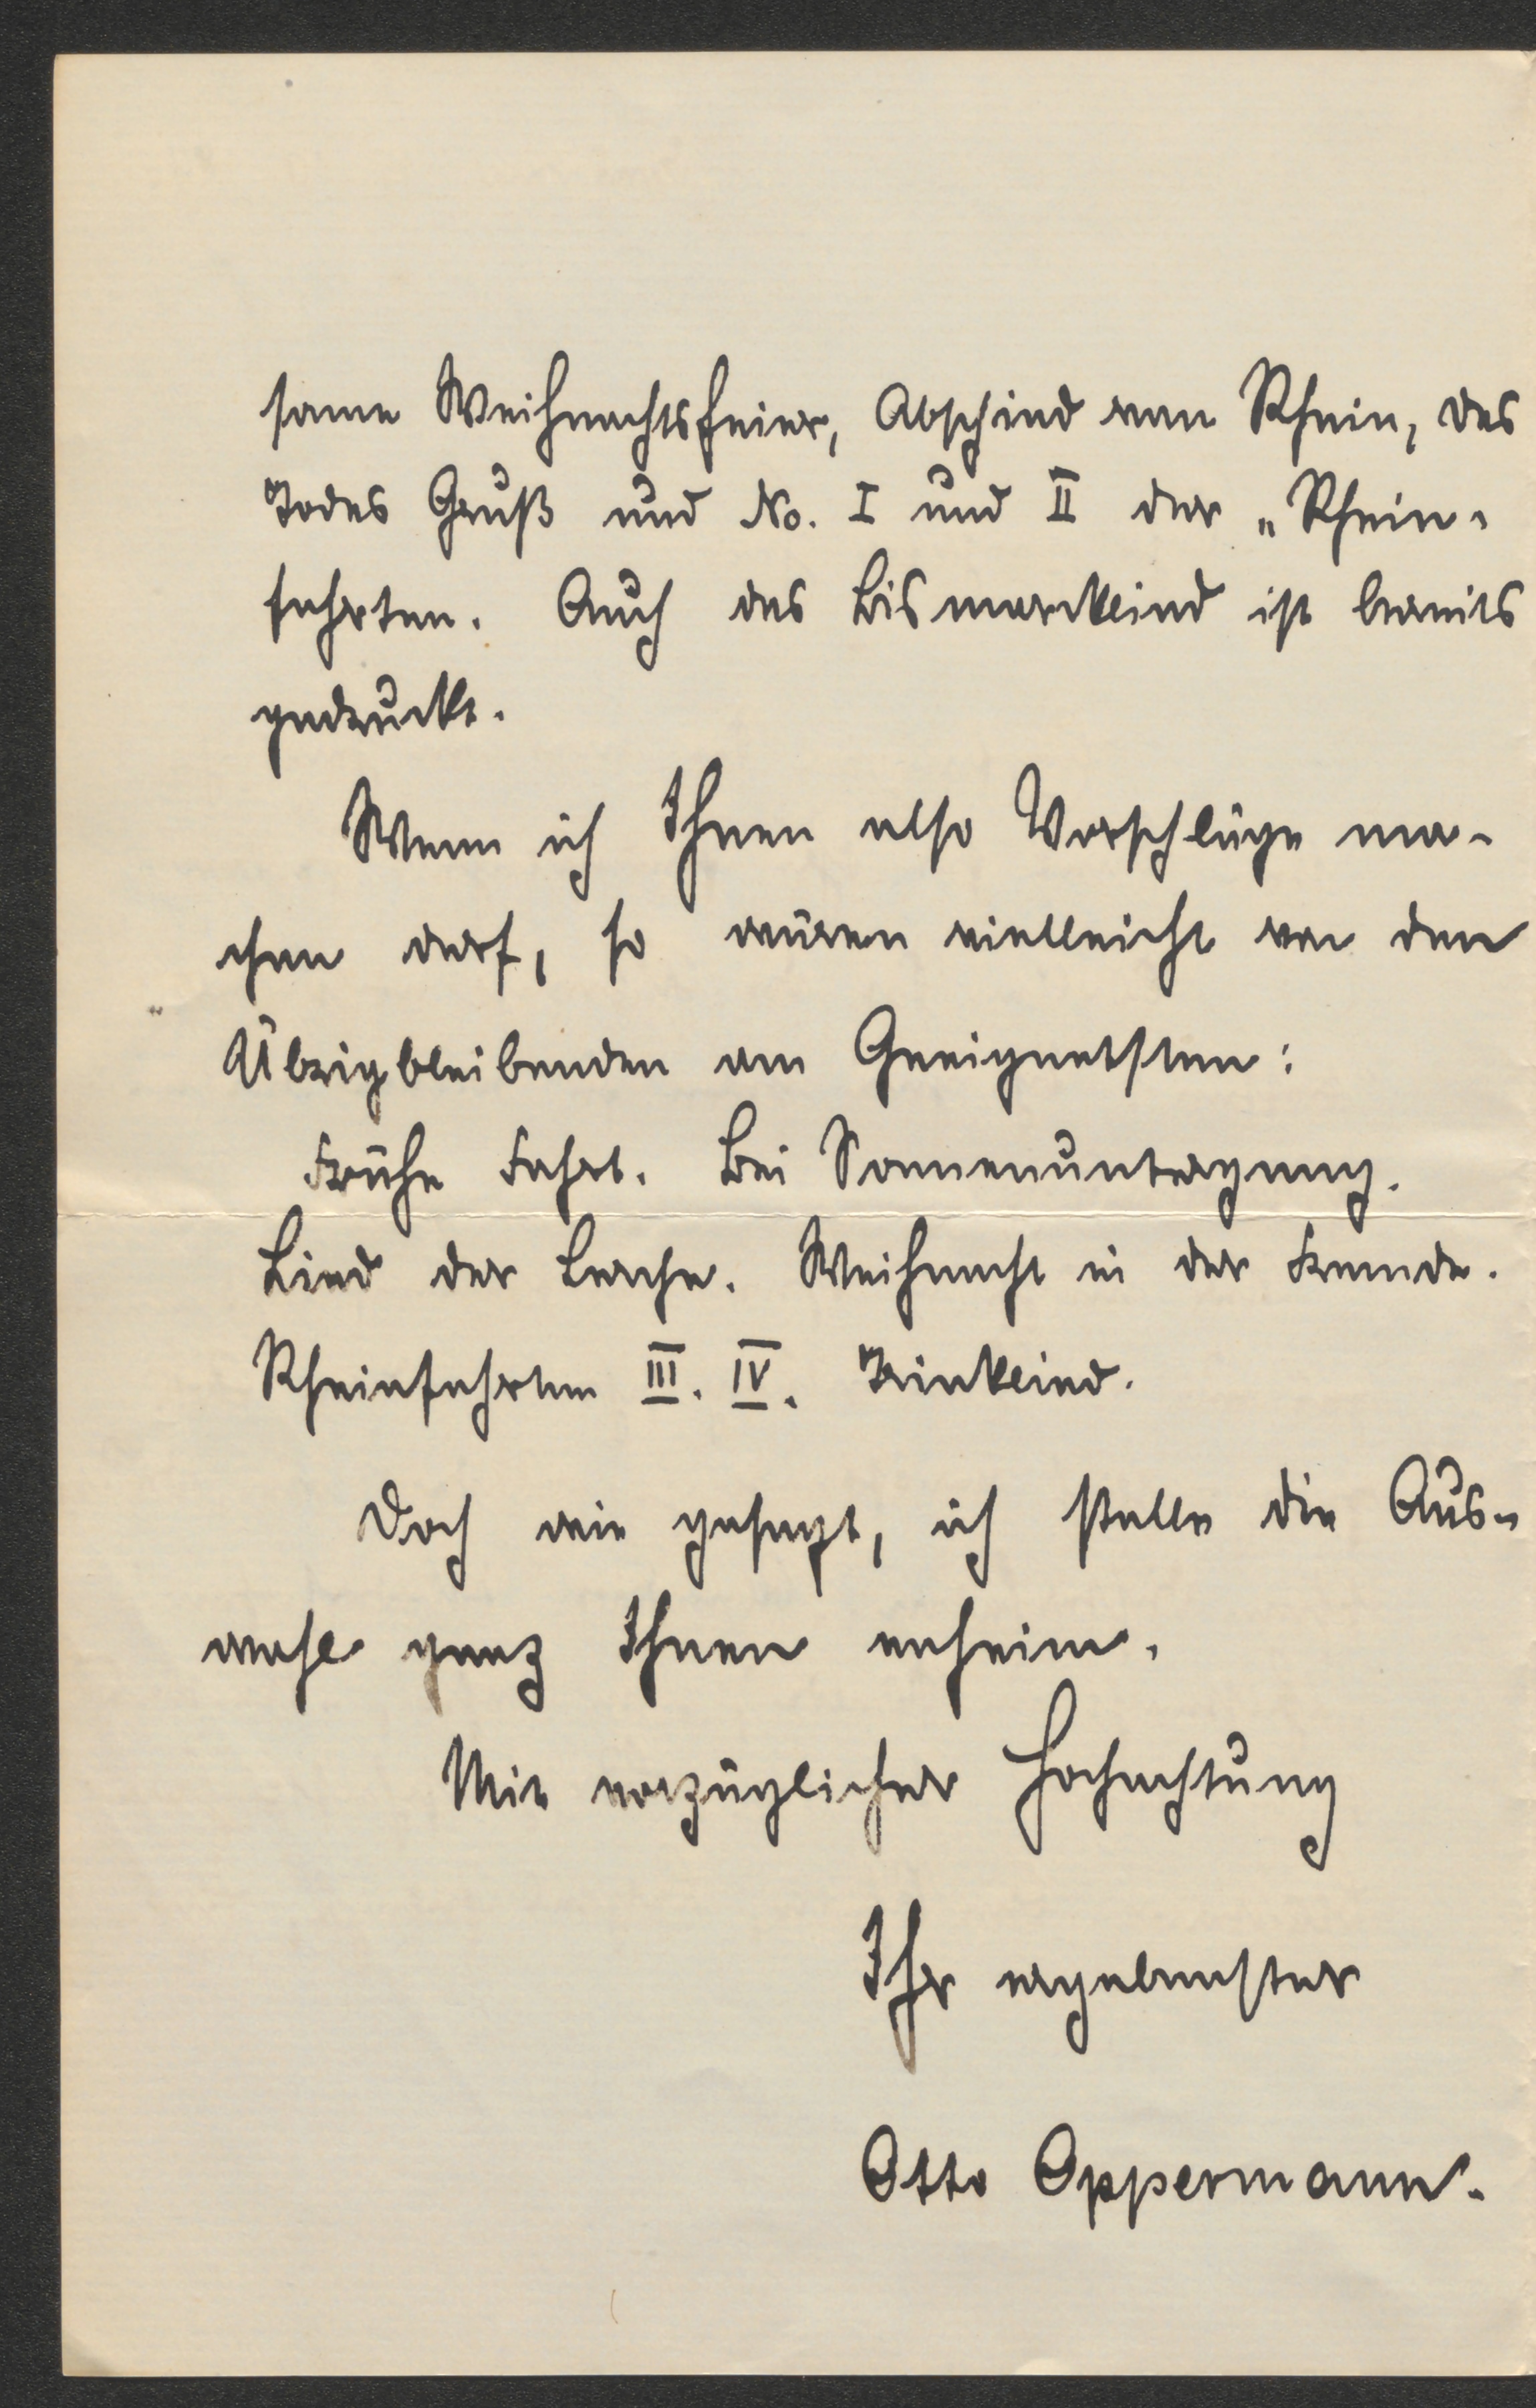 same Weihnachtsfeier, Abschied vom Rhein, Des
Todes Gruß und No. I und II der „Rhein-
fahrten. Auch das Bismarcklied ist bereits
gedruckt.
Wenn ich Ihnen also Vorschläge ma-
chen darf, so wären vielleicht von den
Übrigbleibenden am Geeignetsten:
Frühe Fahrt. Bei Sonnenuntergang.
Lied der Lerche. Weihnacht in der Fremde.
Rheinfahrten III. IV. Trinklied.
Doch wie gesagt, ich stelle die Aus-
wahl ganz Ihnen anheim.
Mit vorzüglicher Hochachtung
Ihr ergebenster
Otto Oppermann.